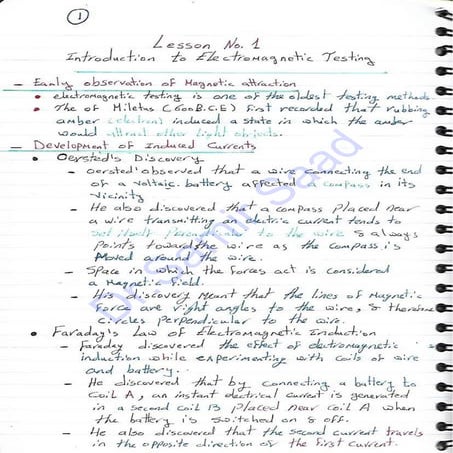 1
Lesson No. 1
Introduction to Electromagnetic Testing
- Early observation of Magnetic attraction
• electromagnetic testing is one of the oldest testing methods
• The of Miletus (600B.C.E) first recorded that rubbing
amber (electron) induced a state in which the amber
would attract other light objects.
- Development of Induced Currents
• Oersted's Discovery
- oersted observed that a wire connecting the end
of a voltaic battery affected a compass in its
vicinity
- He also discovered that a compass placed near
a wire transmitting an electric current tends to
set itself to the wire & always
points toward the wire as the compass is
moved around the wire.
- Space in which the forces act is considered
a Magnetic field.
- His discovery meant that the lines of Magnetic
Force are right angles to the wire, &
circles perpendicular to the wire.
• Faraday's Law of Electromagnetic Induction
- Faraday discovered the effect of electromagnetic
induction while experimenting with coils of wire
and battery.
- He discovered that by connecting a battery to
coil A, an instant electrical current is generated
in a second coil B placed near coil A when
the battery is switched on & off.
- He also discovered that the second current travels
in the opposite direction of the first current.
Dr. Samir Saad